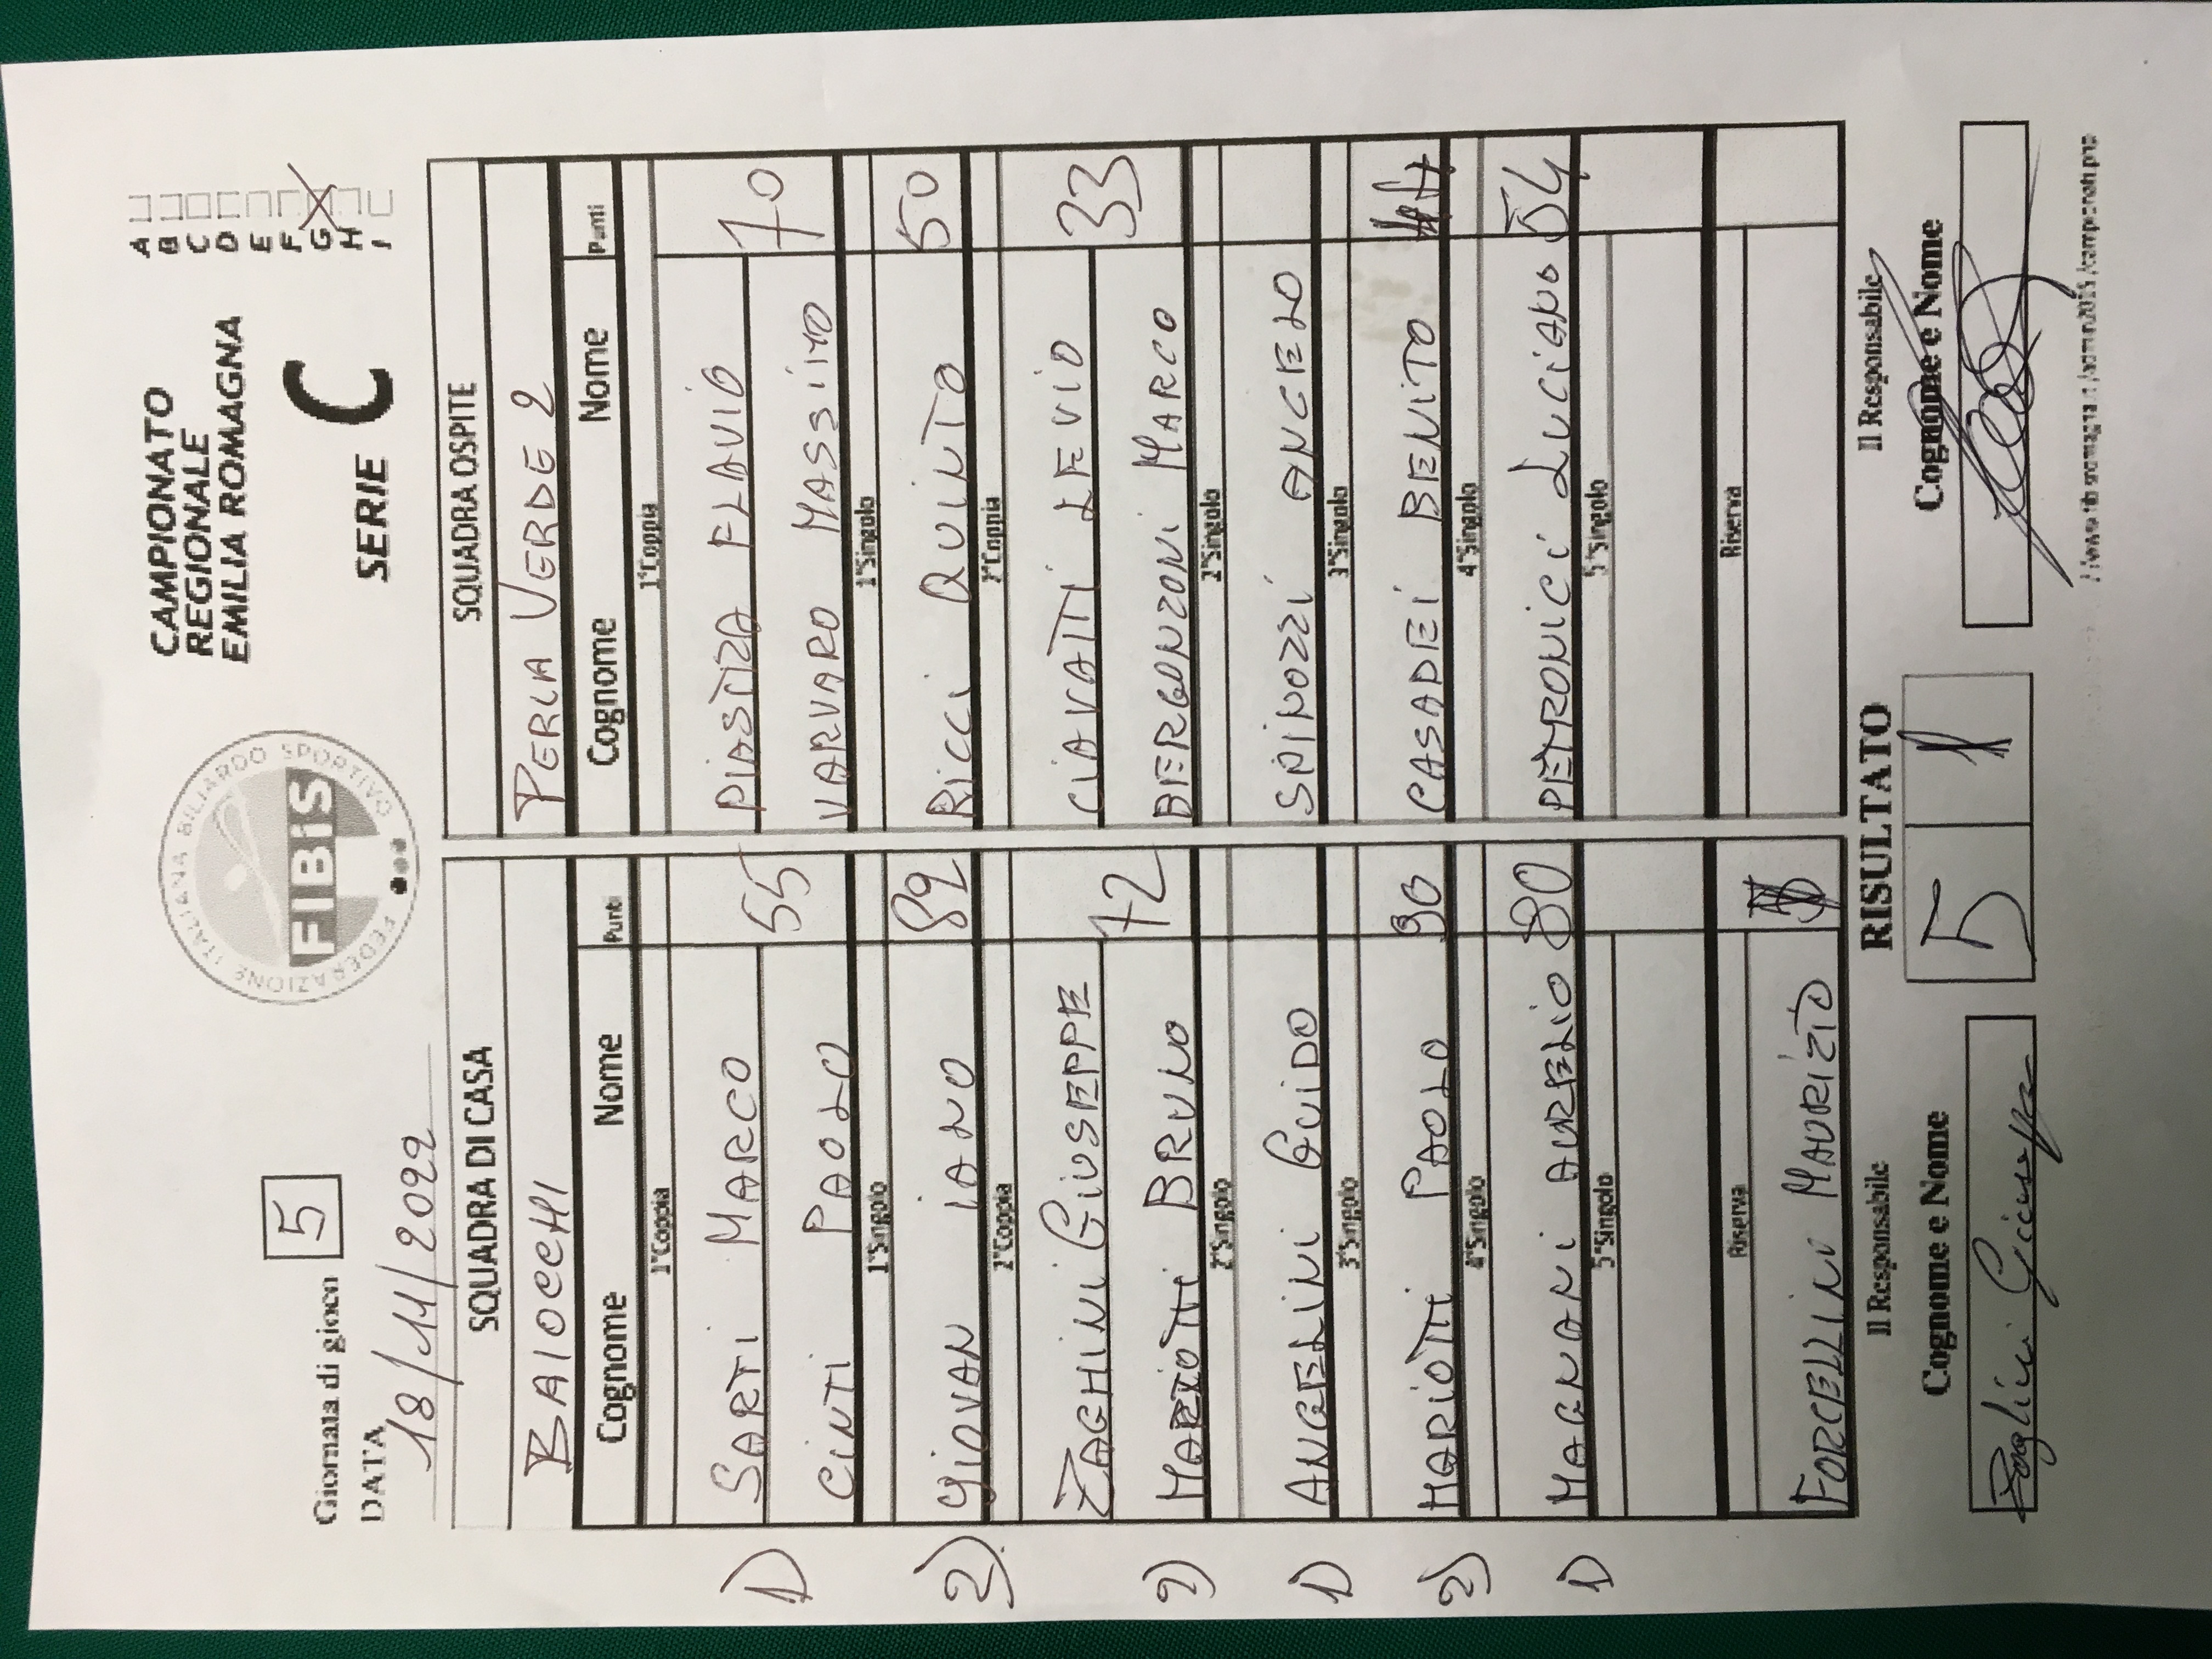 Giornata di gioco 5
DATA 18/11/2022
FEDERAZIONE ITALIANA BILIARDO SPORTIVO
FIBiS
CAMPIONATO
REGIONALE
EMILIA ROMAGNA
SERIE C
A
B
C
D
E
F
G
H
I
SQUADRA DI CASA SQUADRA OSPITE
BAIOCCHI PERLA VERDE 2
Cognome Nome Punti Cognome Nome Punti
1°Coppia 1°Coppia
1) SARTI MARCO 55 PIASTRA FLAVIO 70
CINTI PAOLO VARVARO MASSIMO
1°Singolo 1°Singolo
2) GIOVAN IANO 89 RICCI QUINTO 50
2°Coppia 2°Coppia
2) ZAGHINI GIUSEPPE 72 CIAVATTI LEVIO 33
MARIOTTI BRUNO BERGONZONI MARCO
2°Singolo 2°Singolo
1) ANGELINI GUIDO SPINOZZI ANGELO
3°Singolo 3°Singolo
2) MARIOTTI PAOLO 90 CASADEI BENITO
4°Singolo 4°Singolo
1) MAGNANI AURELIO 80 PETRONICI LUCIANO 54
5°Singolo 5°Singolo
Riserva Riserva
FORCELLINO MAURIZIO
Il Responsabile RISULTATO Il Responsabile
Cognome e Nome 5 1 Cognome e Nome
Giuseppe